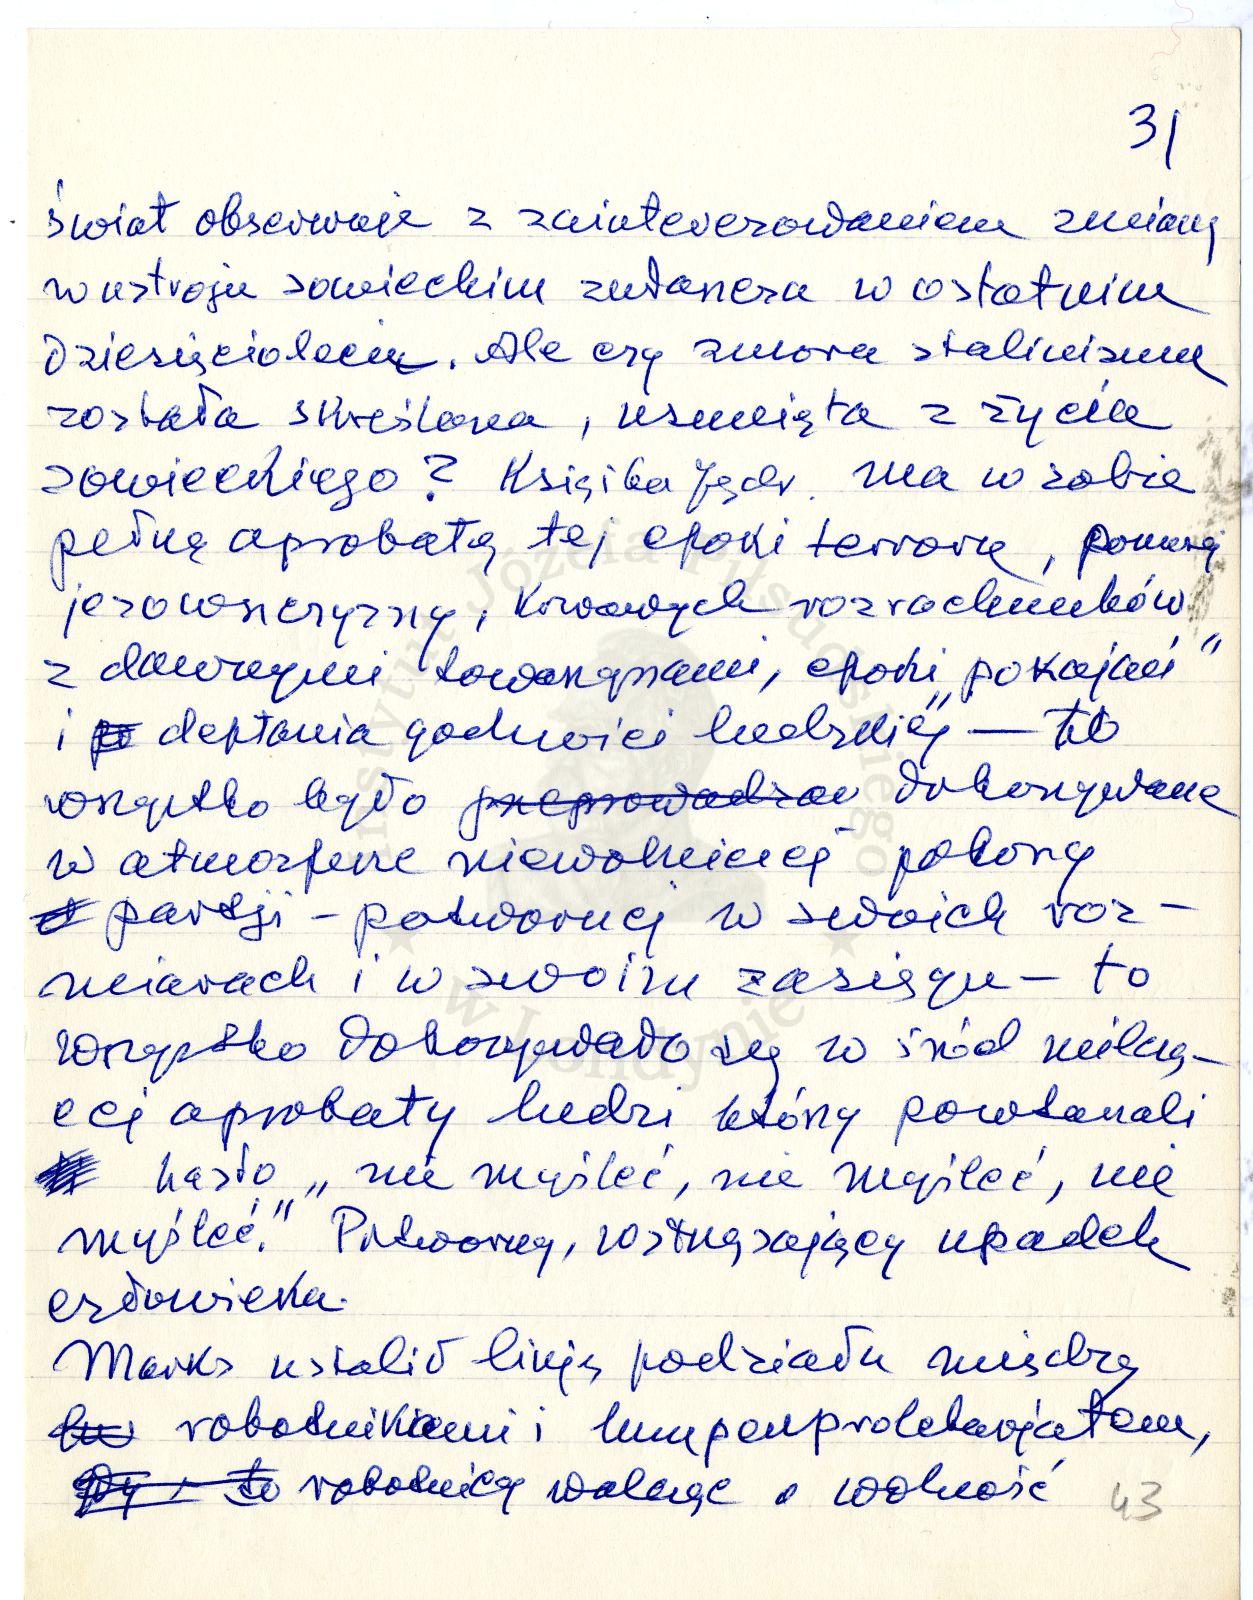 31
świat obserwuje z zainteresowaniem zmiany
w ustroju sowieckim zwłaszcza w ostatnim
dziesięcioleciu. Ale czy zmora stalinizmu
została skreślona, usunięta z życia
sowieckiego? Książka Jędr. ma w sobie
pełną aprobatę tej epoki terroru, ponurej
jeżowszczyzny, krwawych rozrachunków
z dawnymi towarzyszami, epoki „pokajań"
i deptania godności ludzkiej" — to
wszystko było przeprowadzan dokonywane
w atmosferze niewolniczej pokory
partji - potwornej w swoich roz-
miarach i w swoim zasięgu - to
wszystko dokonywało się w śród milczą-
cej aprobaty ludzi którzy powtarzali
hasło „nie myśleć, nie myśleć, nie
myśleć." Potworny, wstrząsający upadek
człowieka.
Marks ustalił linję podziału między
robotnikami i lumpenproletarjatem,
gdy to robotnicy walcząc o wolność
43
Instytut Józefa Piłsudskiego
w Londynie